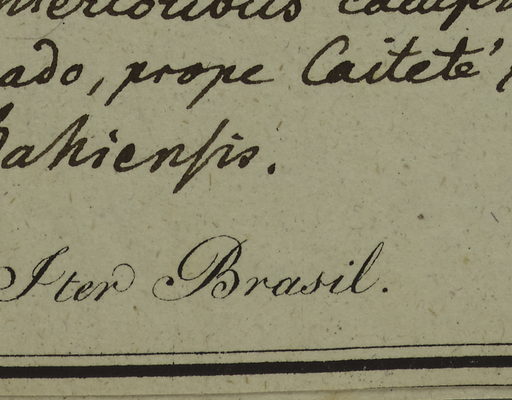 interioribus camp
ado, prope Caiteté
Bahiensis.
Iter Brasil.